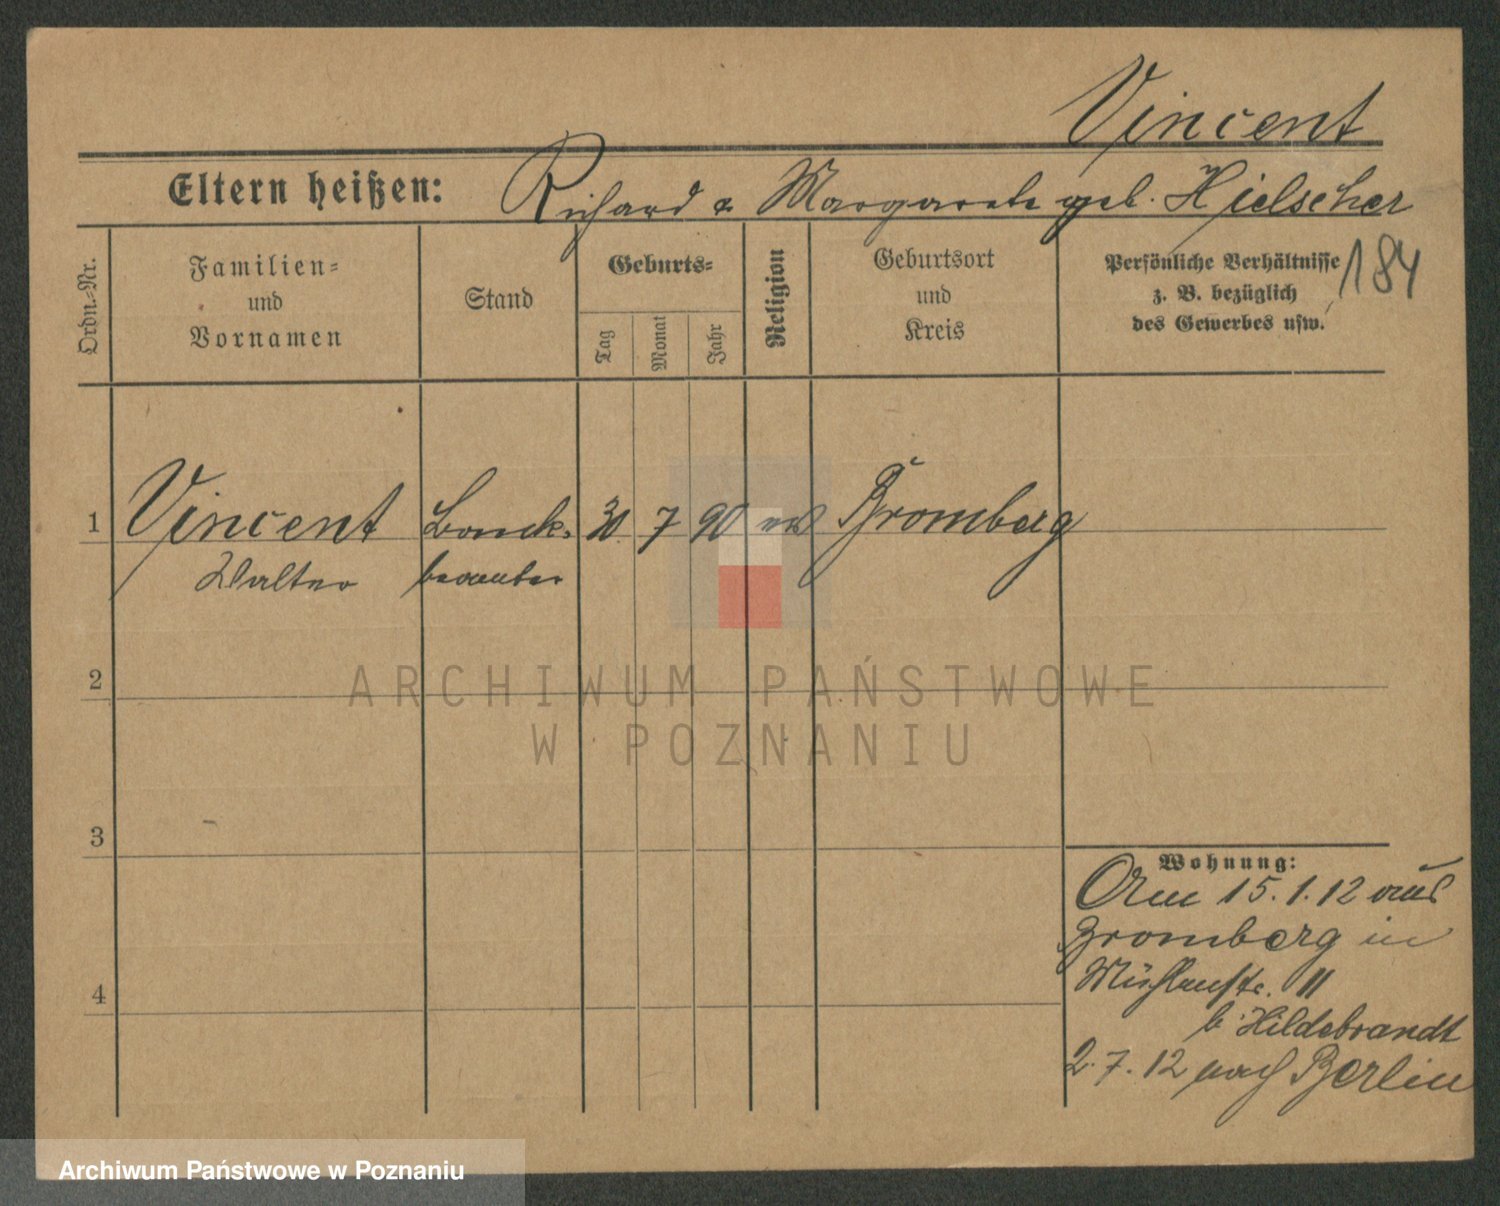 Vincent
Eltern heißen: Richard u Margarete geb. Hielscher
Ordn.-Nr.
Familien-
und
Vornamen
Stand
Geburts-
Tag
Monat
Jahr
Religion
Geburtsort
und
Kreis
Persönliche Verhältnisse
z. B. bezüglich
des Gewerbes usw.
184
1 Vincent Bank- 30 7 90 Bromberg
Walter beamter
2
ARCHIWUM PAŃSTWOWE
W POZNANIU
3
Wohnung:
Am 15.1.12 aus
Bromberg in
Mühlenstr. 11
b Hildebrandt
4
2.7.12 nach Berlin
Archiwum Państwowe w Poznaniu